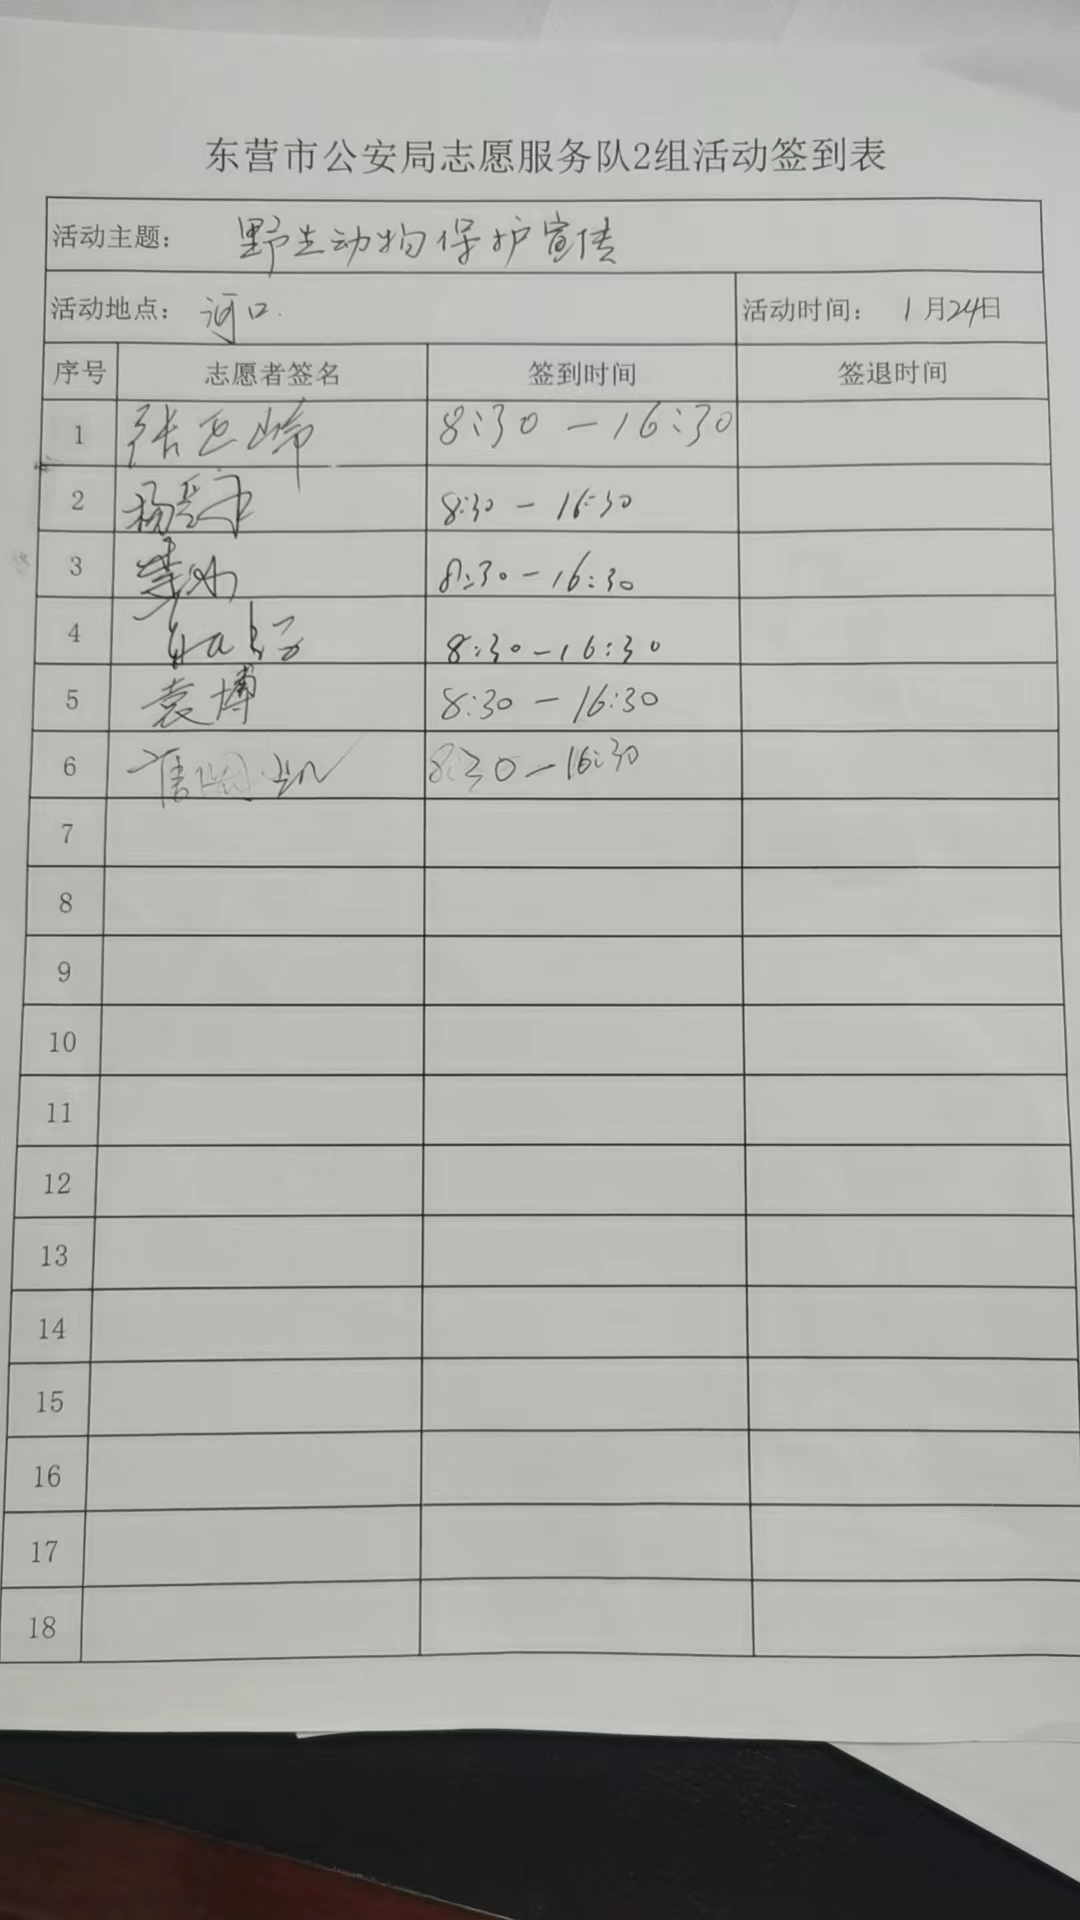 东营市公安局志愿服务队2组活动签到表
活动主题： 野生动物保护宣传
活动地点： 河口 活动时间： 1月24日
序号 志愿者签名 签到时间 签退时间
1 张 8:30－16:30
2 杨 8:30－16:30
3 8:30－16:30
4 8:30－16:30
5 袁博 8:30－16:30
6 8:30－16:30
7
8
9
10
11
12
13
14
15
16
17
18